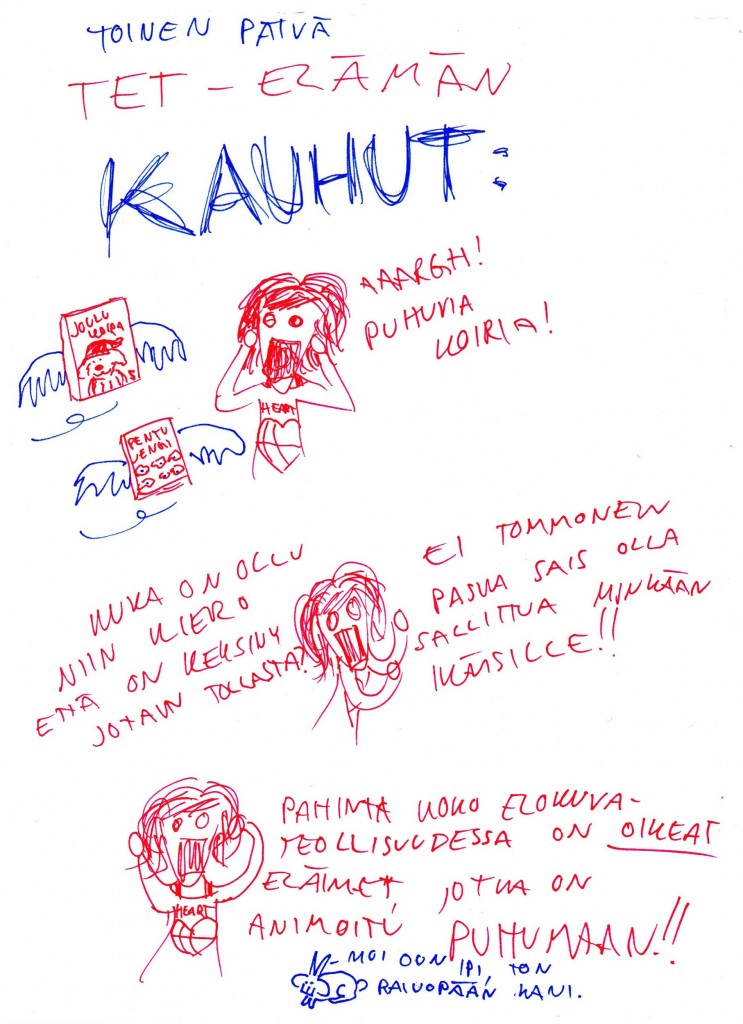 TOINEN PÄIVÄ
TET - ELÄMÄN
KAUHUT:
AAARGH!
PUHUVIA
KOIRIA!
JOULU
KOIRA
HEART
PENTU
JENGI
KUKA ON OLLU
NIIN KIERO
ETTÄ ON KEKSINY
JOTAIN TOLLASTA?
EI TOMMONEN
PASKA SAIS OLLA
SALLITTUA MINKÄÄN
IKÄISILLE!!
PAHINTA KOKO ELOKUVA-
TEOLLISUUDESSA ON OIKEAT
ELÄIMET, JOTKA ON
ANIMOITU PUHUMAAN!!
HEART
MOI OON IPI, TON
RAIVOPÄÄN KANI.